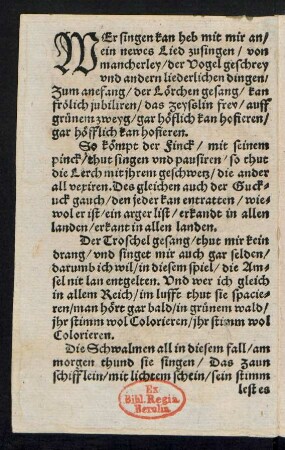 WEr singen kan heb mit mir an/
ein newes Lied zusingen / von
mancherley / der Vogel geschrey
vnd andern liederlichen dingen /
Zum anefang / der Lörchen gesang / kan
frölich jubiliren / das zeyßlin frey / auff
grünem zweyg / gar höflich kan hofieren /
gar höfflich kan hofieren.
So kömpt der Finck / mit seinem
pinck / thut singen vnd pausiren / so thut
die Lerch mit jhrem geschwetz / die ander
all vexiren. Des gleichen auch der Guck-
uck gauch / den jeder kan entratten / wie-
wol er ist / ein arger list / erkandt in allen
landen / erkant in allen landen.
Der Troschel gesang / thut mir kein
drang / vnd singet mir auch gar selden /
darumb ich wil / in diesem spiel / die Am-
sel nit lan entgelten. Vnd wer ich gleich
in allem Reich / im lufft thut sie spacie-
ren / man hört gar bald / in grünem wald /
jhr stimm wol Colorieren / jhr stimm wol
Colorieren.
Die Schwalmen all in diesem fall / am
morgen thund sie singen / Das Zaun
schlifflein / mit lichtem schein / sein stimm
lest es
Ex
Bibl. Regia
Berolin.